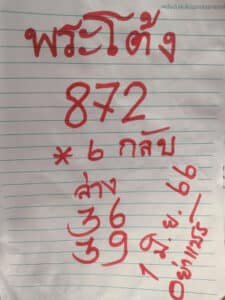 พระโต้ง
872
* ๖ กลับ
ล่าง
36
39
1 มิ.ย. 66
อย่าแชร์